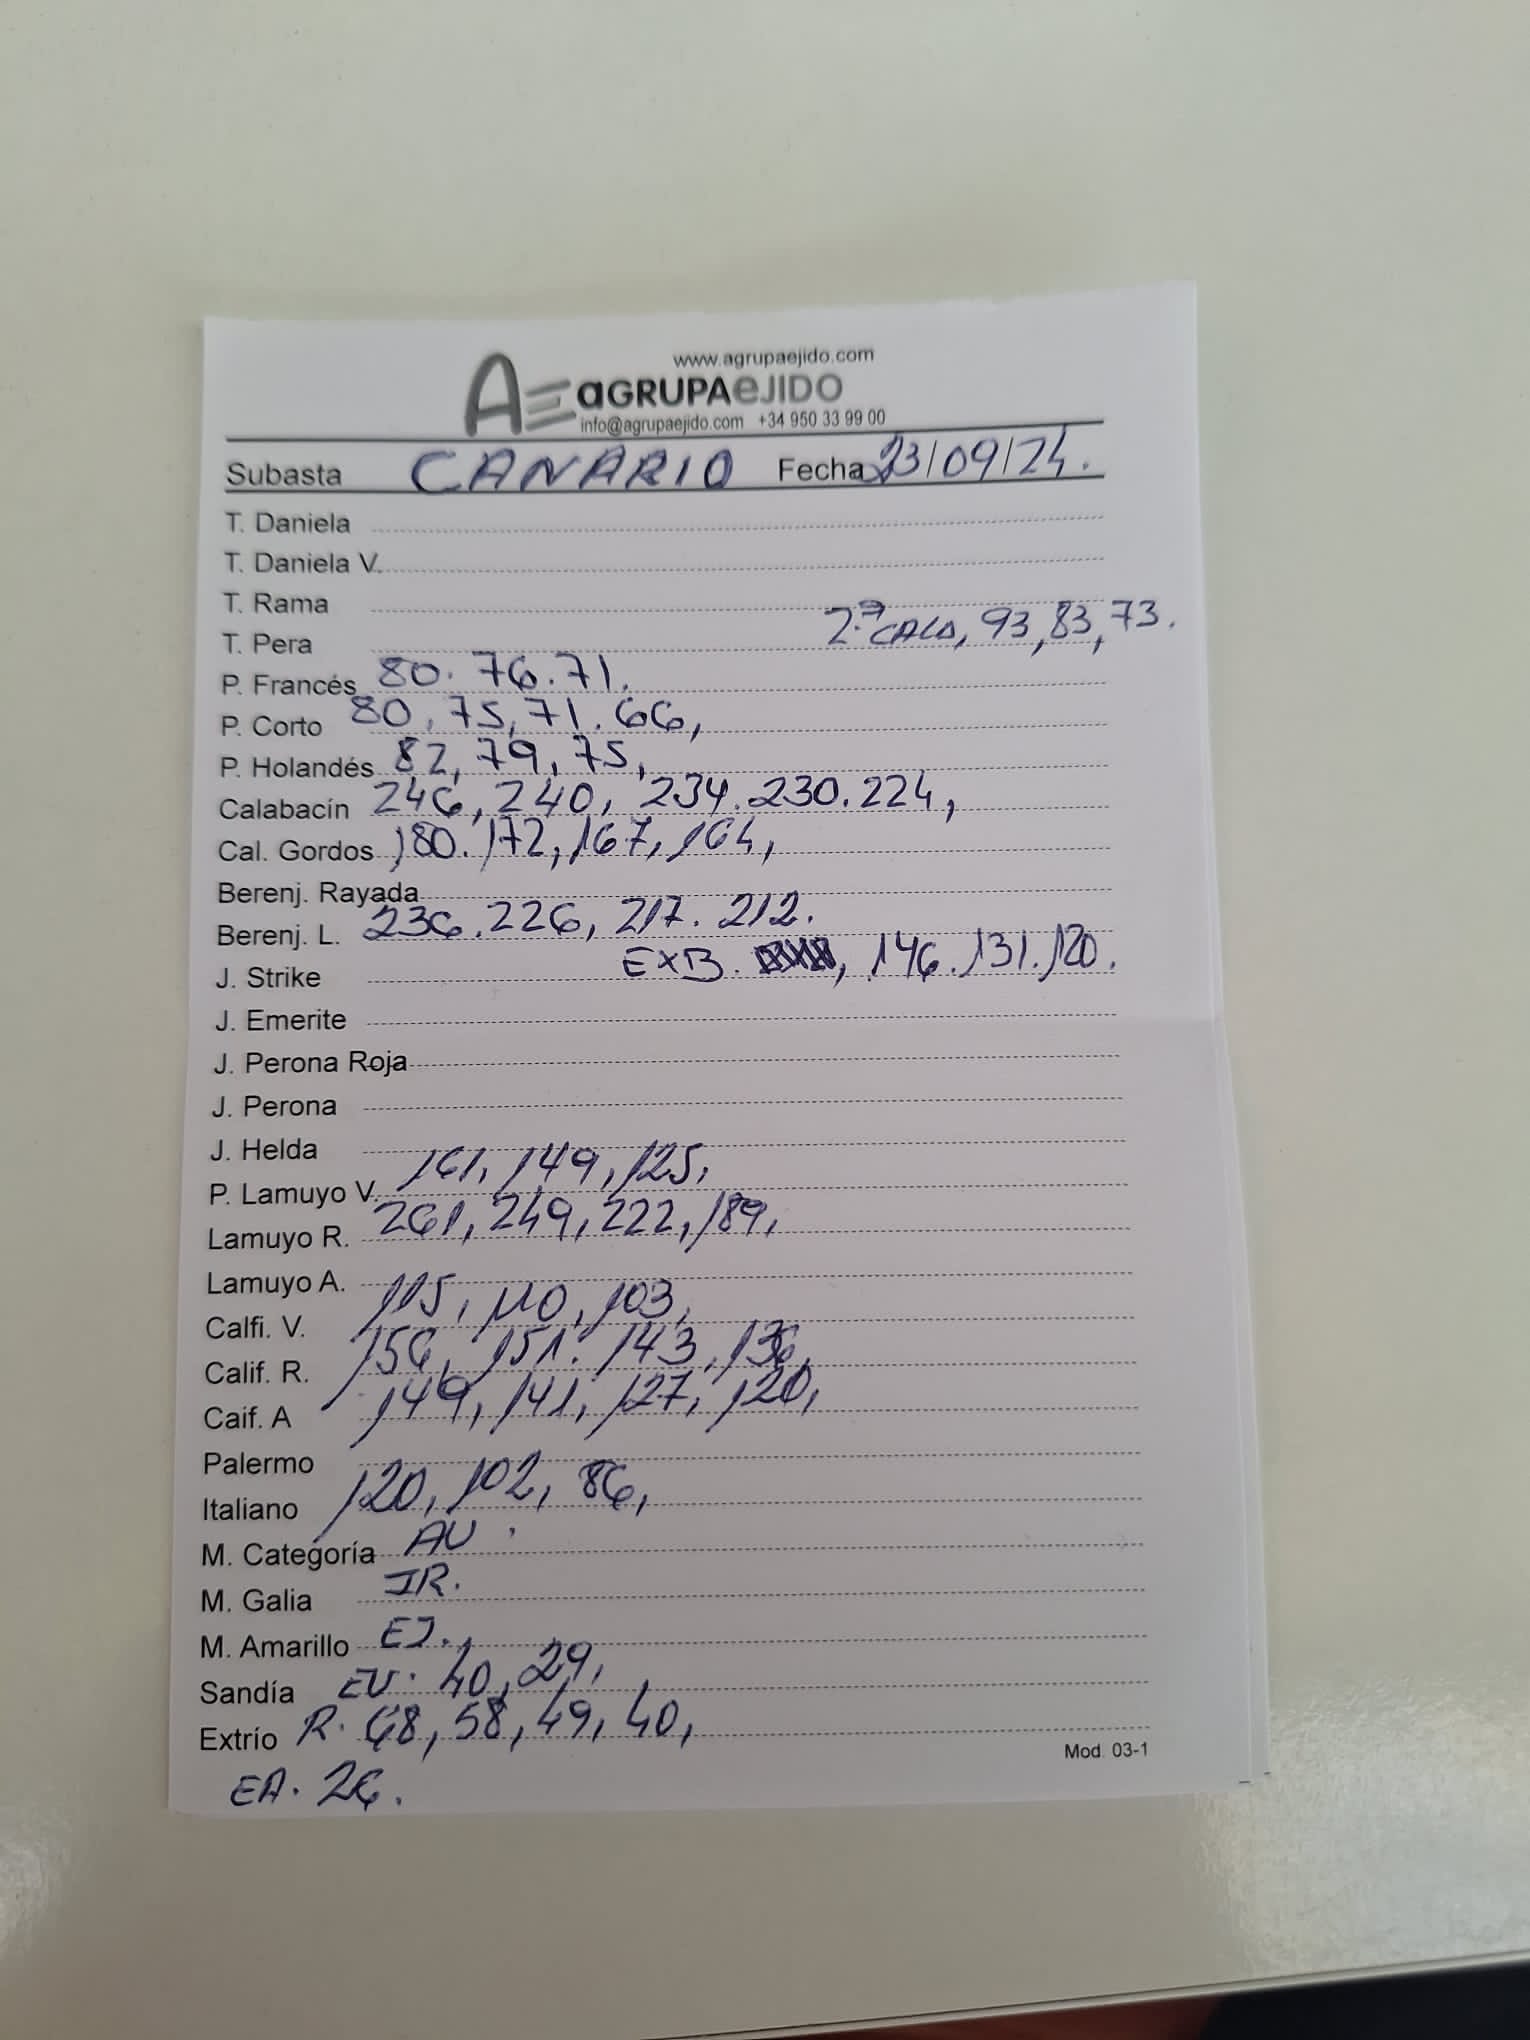 www.agrupaejido.com
AE aGRUPAeJIDO
info@agrupaejido.com +34 950 33 99 00
Subasta CANARIO Fecha 23/09/24.
T. Daniela
T. Daniela V.
T. Rama
T. Pera 2.ª CALA, 93, 83, 73.
P. Francés 80. 76. 71.
P. Corto 80, 75, 71. 66,
P. Holandés 82, 79, 75,
Calabacín 246, 240, 234. 230. 224,
Cal. Gordos 180. 172, 167, 164,
Berenj. Rayada
Berenj. L. 236. 226, 217. 212.
J. Strike EXB. , 146. 131. 120.
J. Emerite
J. Perona Roja
J. Perona
J. Helda
P. Lamuyo V. 161, 149, 125,
Lamuyo R. 261, 249, 222, 189,
Lamuyo A.
Calfi. V. 115, 110, 103,
Calif. R. 156, 151. 143, 136,
Caif. A 149, 141, 127, 120,
Palermo
Italiano 120, 102, 86,
M. Categoría AV
M. Galia IR.
M. Amarillo EJ.
Sandía EV. 40, 29,
Extrío R. 68, 58, 49, 40,
Mod. 03-1
EA. 26.